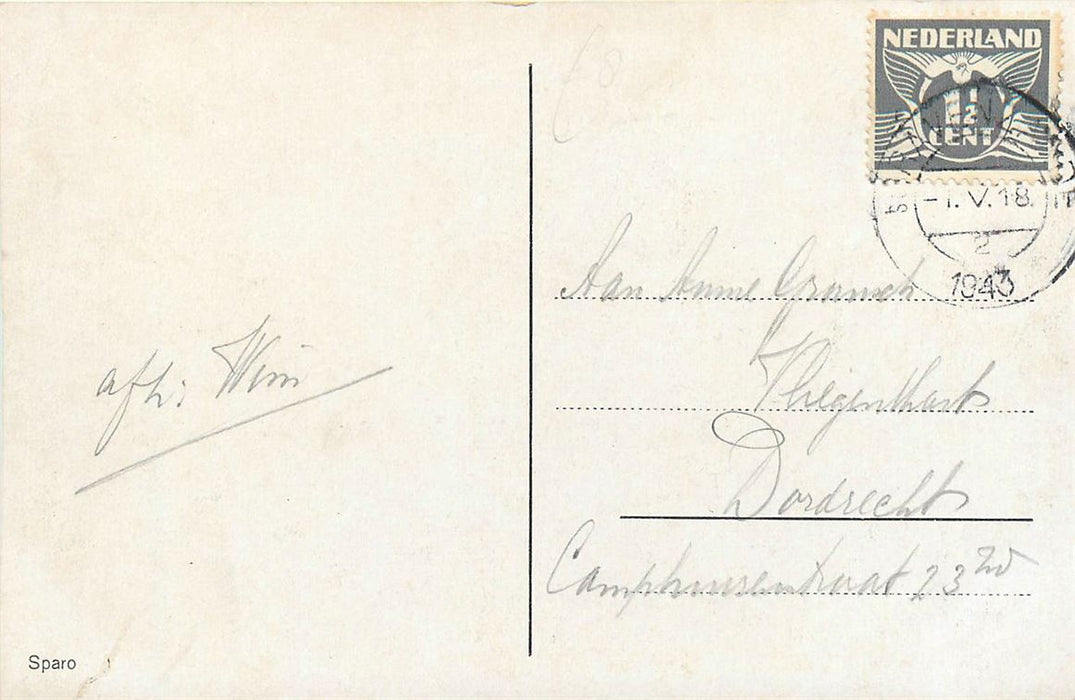 NEDERLAND
1½
CENT
-1. V. 18.
2
1943
afz: Wim
Aan Annie
Vliegenthart
Dordrecht
Camphuizenstraat 23 zw
Sparo